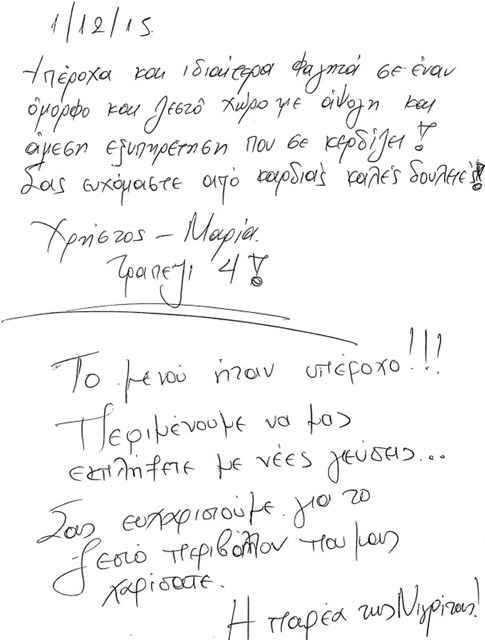 1/12/15
Υπέροχα και ιδιαίτερα φαγητά σε έναν
όμορφο και ζεστό χώρο με άψογη και
άμεση εξυπηρέτηση που σε κερδίζει!
Σας ευχόμαστε από καρδιάς καλές δουλειές!
Χρήστος – Μαρία.
τραπέζι 4!
Το μενού ήταν υπέροχο!!!
Περιμένουμε να μας
εκπλήξετε με νέες γεύσεις...
Σας ευχαριστούμε για το
ζεστό περιβάλλον που μας
χαρίσατε.
Η παρέα της Νιγρίτας!